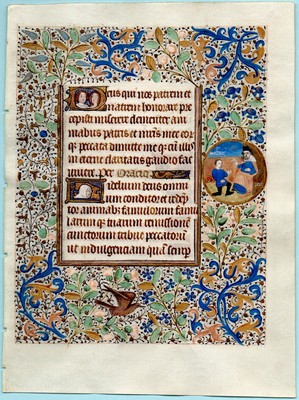 Deus qui nos patrem et
matrem honorare pre
cepisti miserere clementer ani
mabus patris et matris mee eor
que peccata dimitte me que cum illis
in eterne claritatis gaudio fac
vivere. Per Oratio
Fidelium deus omni
um conditor et redemp
tor animabus famulorum famu
larumque tuarum remissionem
cunctorum tribue peccatorum
ut indulgentiam quam semper